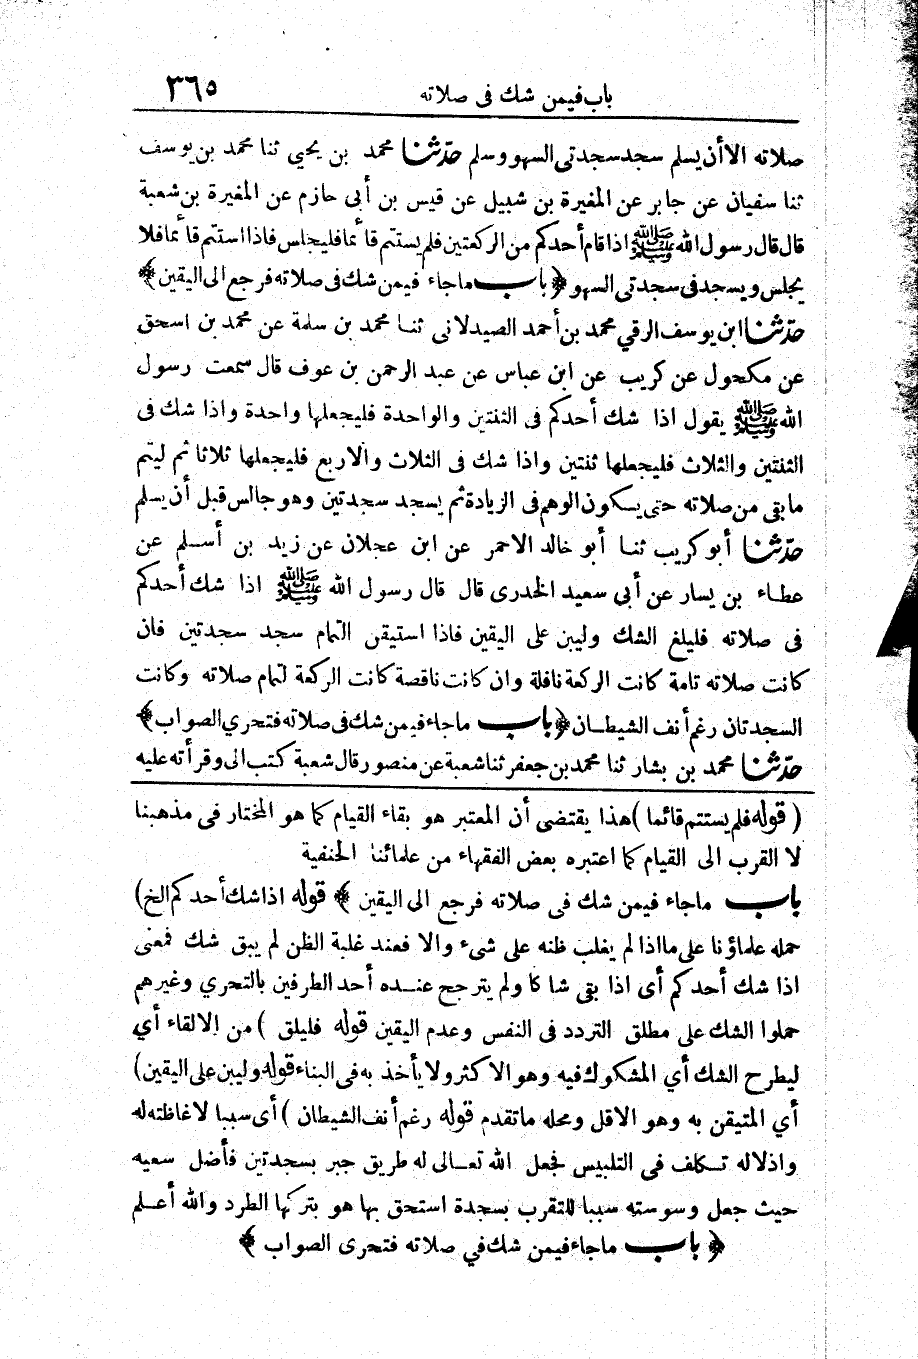 باب فيمن شك فى صلاته ٣٦٥
صلاته الا أن يسلم سجد سجدتى السهو وسلم حدّثنا محمد بن يحيى ثنا محمد بن يوسف
ثنا سفيان عن جابر عن المغيرة بن شبيل عن قيس بن أبى حازم عن المغيرة بن شعبة
قال قال رسول الله ﷺ اذا قام أحدكم من الركعتين فلم يستتم قائما فليجلس فاذا استتم قائما فلا
يجلس ويسجد فى سجدتى السهو ﴿ باب ماجاء فيمن شك فى صلاته فرجع الى اليقين ﴾
حدّثنا ابن يوسف الرقي محمد بن أحمد الصيدلانى ثنا محمد بن سلمة عن محمد بن اسحق
عن مكحول عن كريب عن ابن عباس عن عبد الرحمن بن عوف قال سمعت رسول
الله ﷺ يقول اذا شك أحدكم فى الثنتين والواحدة فليجعلها واحدة واذا شك فى
الثنتين والثلاث فليجعلها ثنتين واذا شك فى الثلاث والاربع فليجعلها ثلاثا ثم ليتم
مابقى من صلاته حتى يكون الوهم فى الزيادة ثم يسجد سجدتين وهو جالس قبل أن يسلم
حدّثنا أبو كريب ثنا أبو خالد الاحمر عن ابن عجلان عن زيد بن أسلم عن
عطاء بن يسار عن أبى سعيد الخدرى قال قال رسول الله ﷺ اذا شك أحدكم
فى صلاته فليلغ الشك وليبن على اليقين فاذا استيقن التمام سجد سجدتين فان
كانت صلاته تامة كانت الركعة نافلة وان كانت ناقصة كانت الركعة لتمام صلاته وكانت
السجدتان رغم أنف الشيطان ﴿ باب ماجاء فيمن شك فى صلاته فتحري الصواب ﴾
حدّثنا محمد بن بشار ثنا محمد بن جعفر ثنا شعبة عن منصور قال شعبة كتب الى وقرأته عليه
( قوله فلم يستتم قائما ) هذا يقتضى أن المعتبر هو بقاء القيام كما هو المختار فى مذهبنا
لا القرب الى القيام كما اعتبره بعض الفقهاء من علمائنا الحنفية
باب ماجاء فيمن شك فى صلاته فرجع الى اليقين ﴾ قوله اذا شك أحدكم الخ)
حمله علماؤنا على ما اذا لم يغلب ظنه على شىء والا فعند غلبة الظن لم يبق شك فمعنى
اذا شك أحدكم أى اذا بقى شاكا ولم يترجح عنده أحد الطرفين بالتحري وغيرهم
حملوا الشك على مطلق التردد فى النفس وعدم اليقين قوله فليلق ) من الالقاء أي
ليطرح الشك أي المشكوك فيه وهو الاكثر ولا يأخذ به فى البناء قوله وليبن على اليقين)
أي المتيقن به وهو الاقل ومحله ماتقدم قوله رغم أنف الشيطان ) أى سببا لاغاظته له
واذلاله تكلف فى التلبيس فجعل الله تعالى له طريق جبر بسجدتين فأضل سعيه
حيث جعل وسوسته سببا للتقرب بسجدة استحق بها هو بتركها الطرد والله أعلم
﴿ باب ماجاء فيمن شك في صلاته فتحرى الصواب ﴾